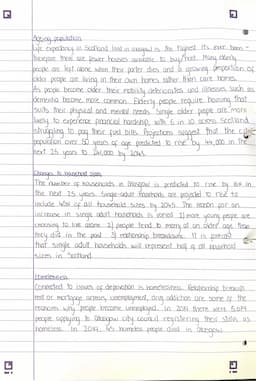 Ageing population
Life expectancy in Scotland (and in Glasgow) is the highest it's ever been -
therefore there are fewer houses available to buy/rent. Many elderly
people are left alone when their partner dies and a growing proportion of
older people are living in their own homes rather than care homes.
As people become older their mobility deteriorates and illnesses such as
dementia become more common. Elderly people require housing that
suits their physical and mental needs. Single older people are more
likely to experience financial hardship, with 6 in 10 across Scotland
struggling to pay their fuel bills. Projections suggest that the city
population over 50 years of age predicted to rise by 44,000 in the
next 25 years to by 2045.
Changes to household sizes
The number of households in Glasgow is predicted to rise by in
the next 25 years. Single adult households are projected to rise to
include 49% of all household sizes by 2045. The reason for an
increase in single adult households is varied 1) more young people are
choosing to live alone 2) people tend to marry at an older age than
they did in the past 3) relationship breakdowns. It is
that single adult households will represent half of all household
sizes in Scotland
Homelessness
Connected to issues of deprivation is homelessness. Relationship breakup,
rent or mortgage arrears, unemployment, drug addiction are some of the
reasons why people become unemployed. In 2019 there were
people applying to Glasgow city council registering their status as
homeless. In 2019, homeless people died in Glasgow